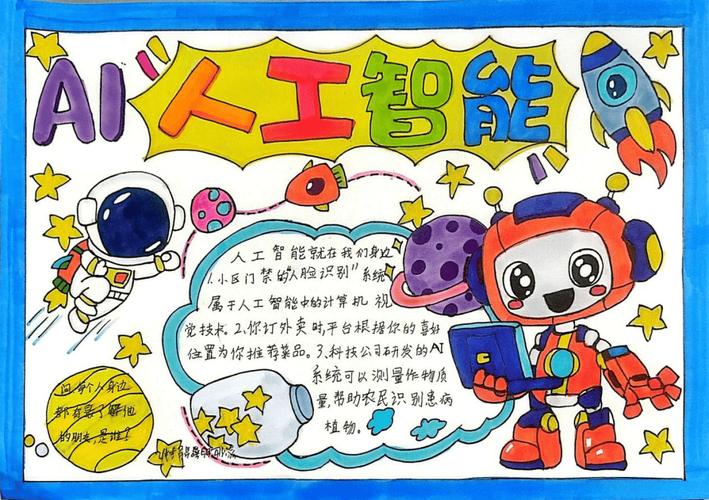 AI人工智能
人工智能就在我们身边
1.小区门禁的"人脸识别"系统
属于人工智能中的计算机视
觉技术2.你订外卖时,平台根据你的喜好
位置为你推荐菜品。3.科技公司研发的AI
系统可以测量作物质
量,帮助农民识别患病
植物。
问:每个人身边
都有
了解他
的朋友,是谁?